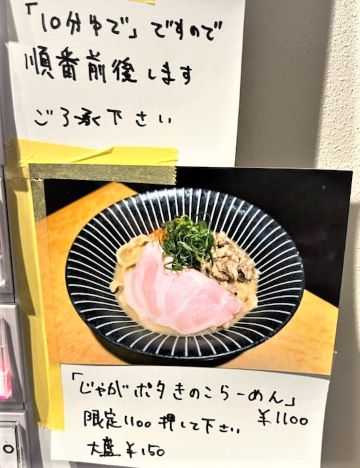 「10分ゆで」ですので
順番前後します
ご了承下さい
「じゃがポタきのこらーめん」
¥1100
限定1100押して下さい
大盛¥150